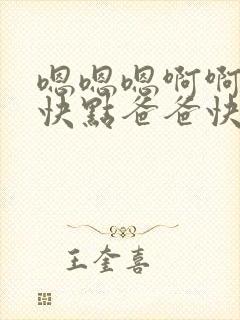 嗯嗯嗯啊啊
快點爸爸快
王奎喜